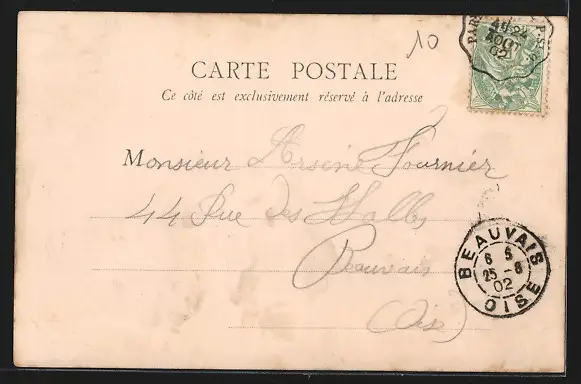 10
PAR
4E 24
AOUT
02
CARTE POSTALE
Ce côté est exclusivement réservé à l'adresse
Monsieur Arsène Fournier
44 Rue des Halles
Beauvais
(Oise)
BEAUVAIS
6 5
25 - 8
02
OISE